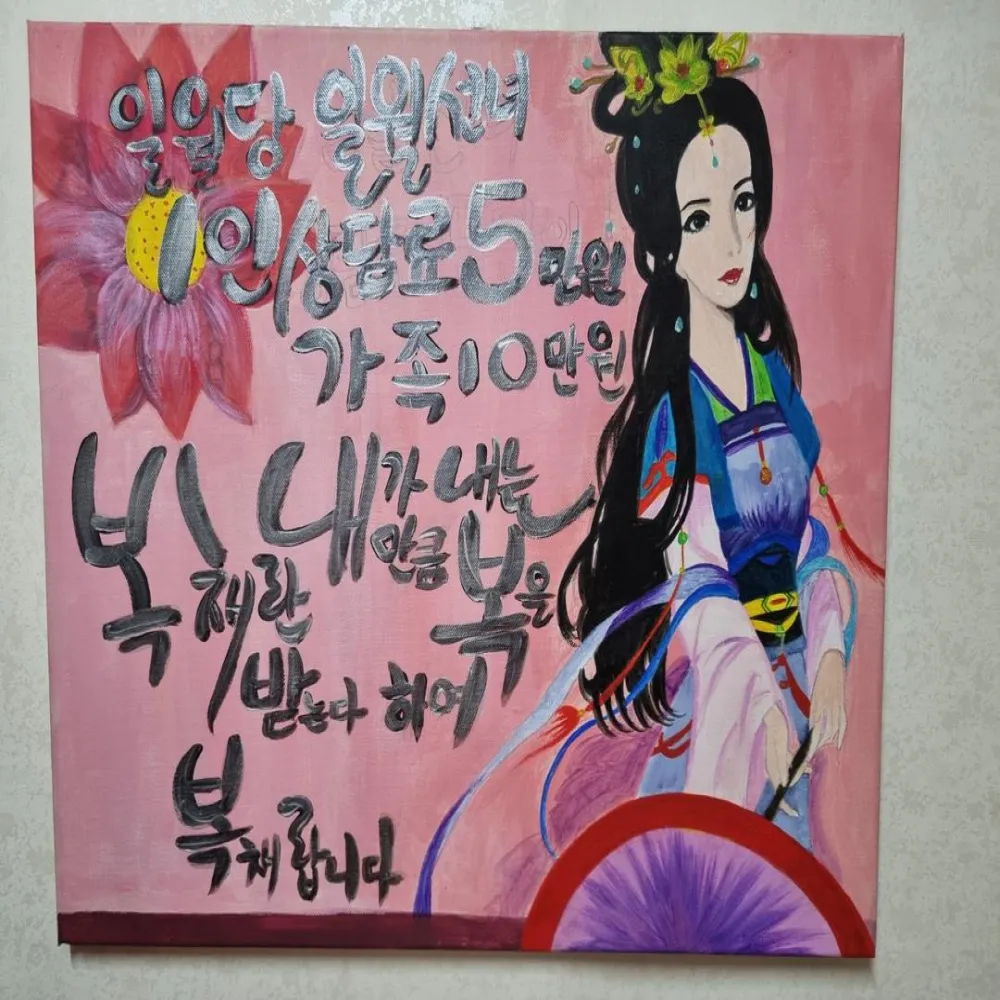 일월당 일월선녀
1인 상담료 5만원
가족 10만원
복채란 내가 내는
만큼 복은
받는다 하여
복채랍니다